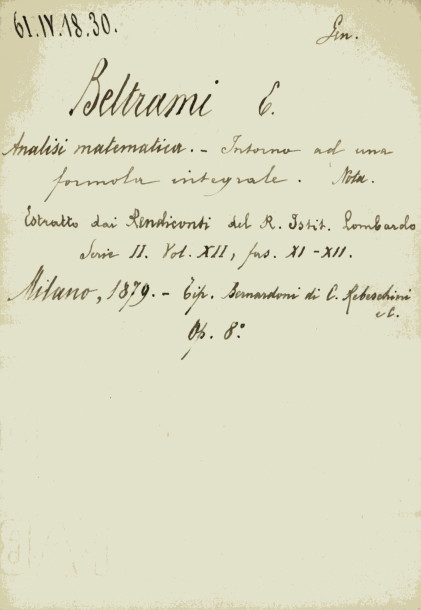 61.IV.18.30.
Gen.
Beltrami E.
Analisi matematica. - Intorno ad una
formola integrale. Nota.
Estratto dai Rendiconti del R. Istit. Lombardo
Serie II. Vol. XII, fas. XI-XII.
Milano, 1879. - Tip. Bernardoni di C. Rebeschini
e C.
Op. 8°